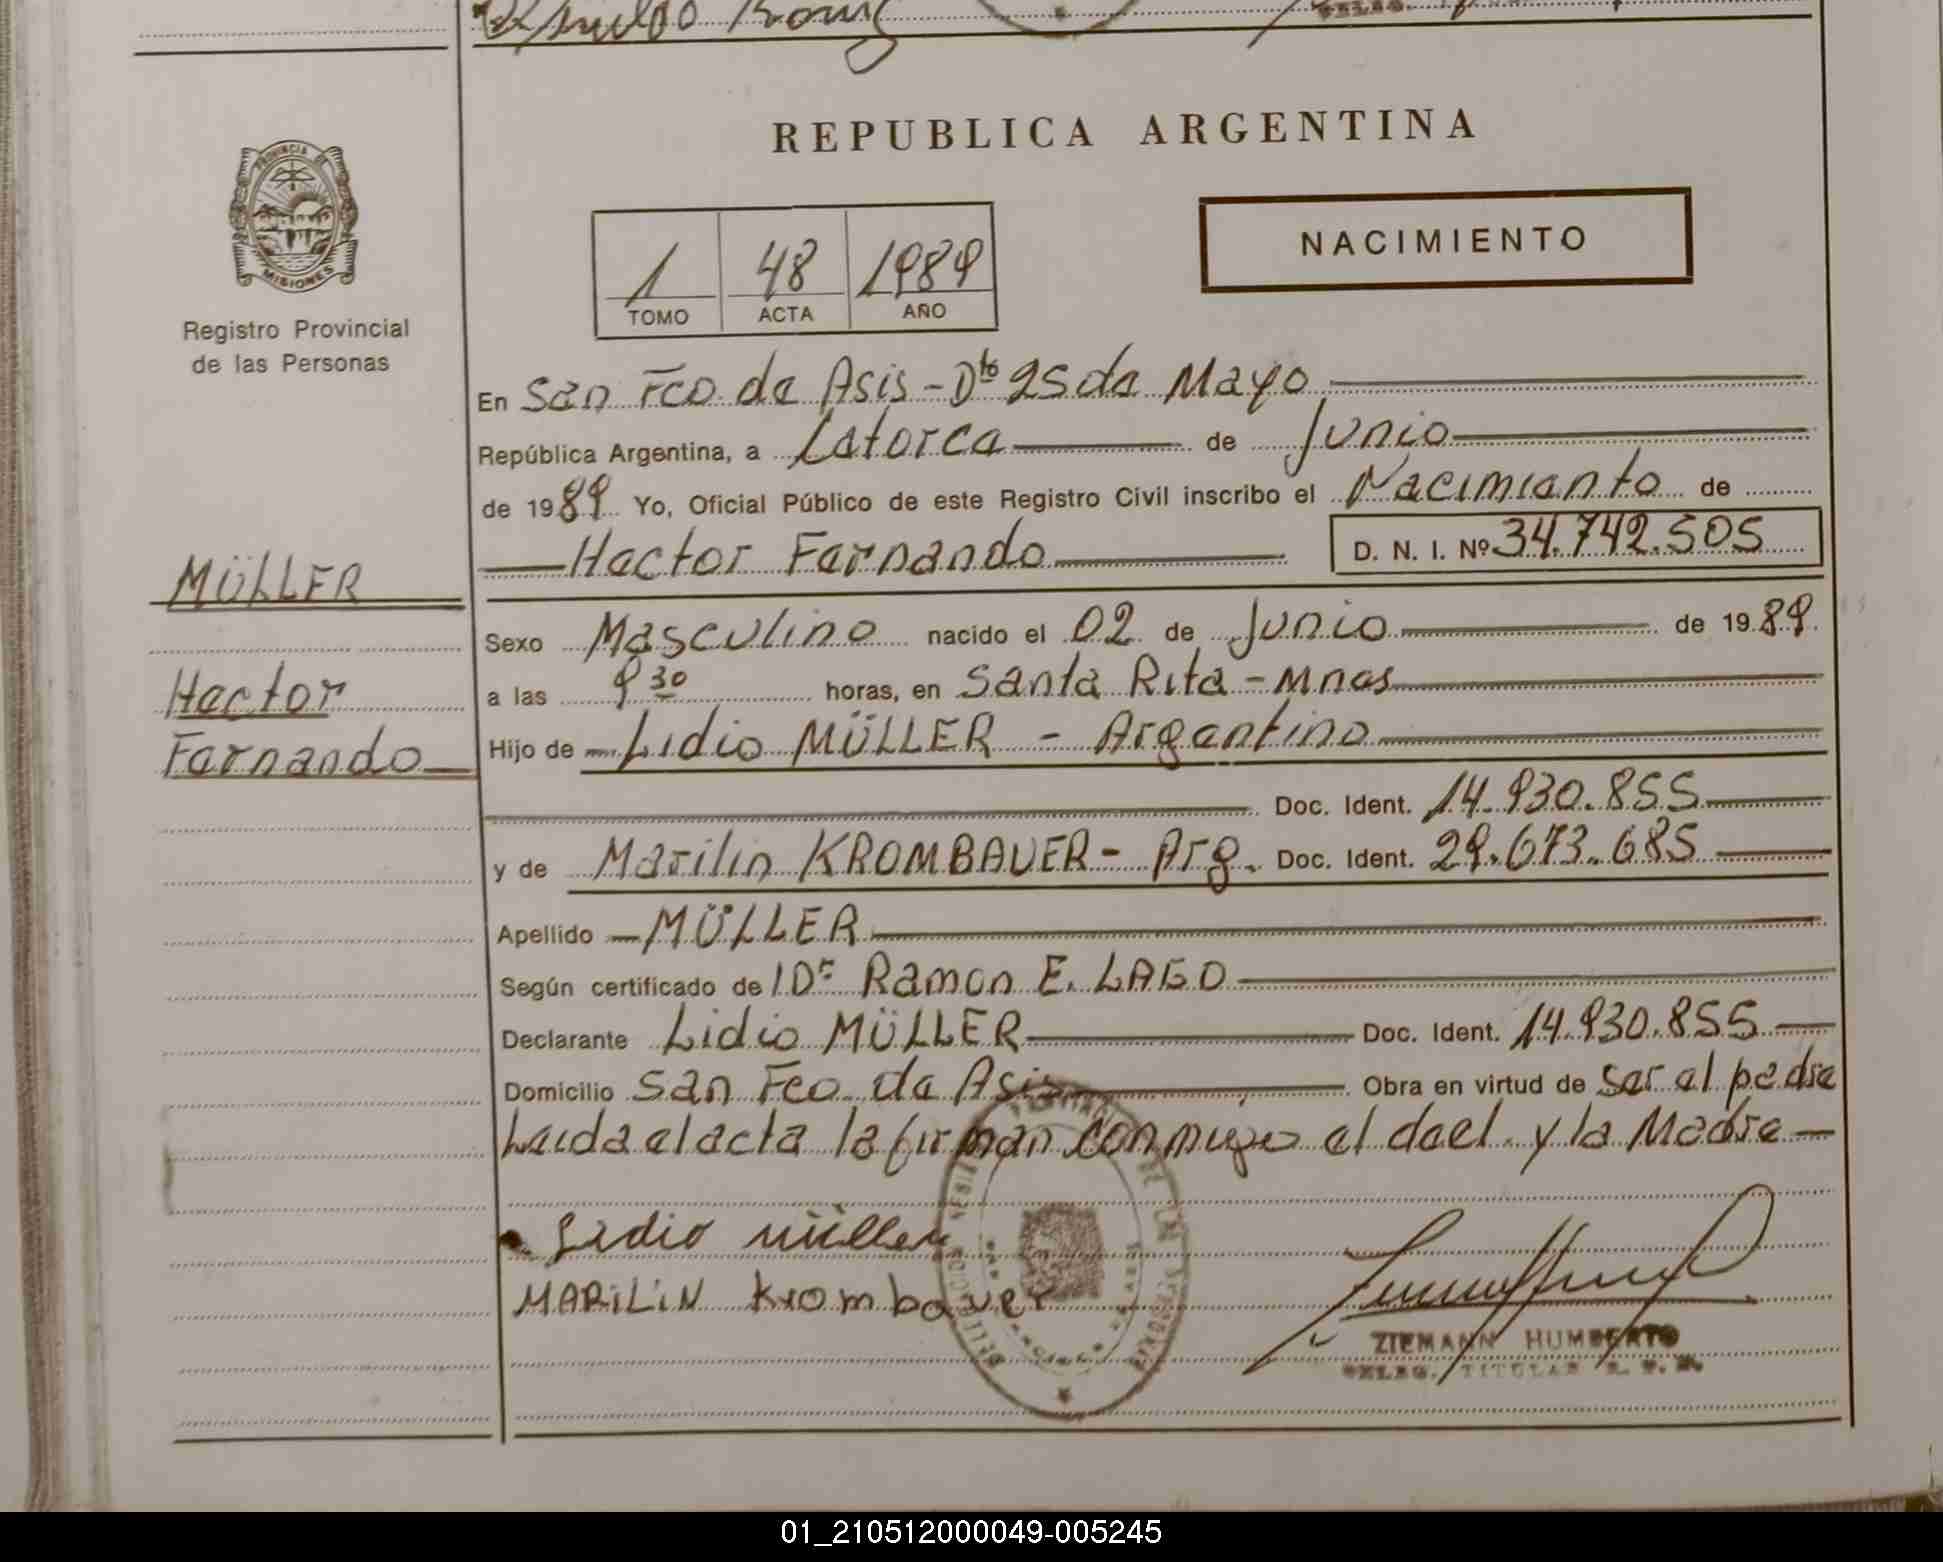 REPUBLICA ARGENTINA
PROVINCIA DE
MISIONES
Registro Provincial
de las Personas
1 48 1989
TOMO ACTA AÑO
NACIMIENTO
En San Fco de Asis - Dto 25 de Mayo
República Argentina, a Catorce de Junio
de 1989 Yo, Oficial Público de este Registro Civil inscribo el Nacimiento de
Hector Fernando D. N. I. Nº 34.742.505
MÜLLER
Hector
Fernando
Sexo Masculino nacido el 02 de Junio de 1989
a las 9 30 horas, en Santa Rita - Mnes
Hijo de Lidio MÜLLER - Argentino
Doc. Ident. 14.930.855
y de Marilin KROMBAUER - Arg. Doc. Ident. 29.673.685
Apellido MÜLLER
Según certificado de Dr Ramon E. LAGO
Declarante Lidio MÜLLER Doc. Ident. 14.930.855
Domicilio San Fco de Asis Obra en virtud de ser el padre
Leida el acta la firman conmigo el decl. y la Madre
Lidio müller
MARiLiN Krombauer
ZIEMANN HUMBERTO
DELEG. TITULAR R. P. P.
01_210512000049-005245